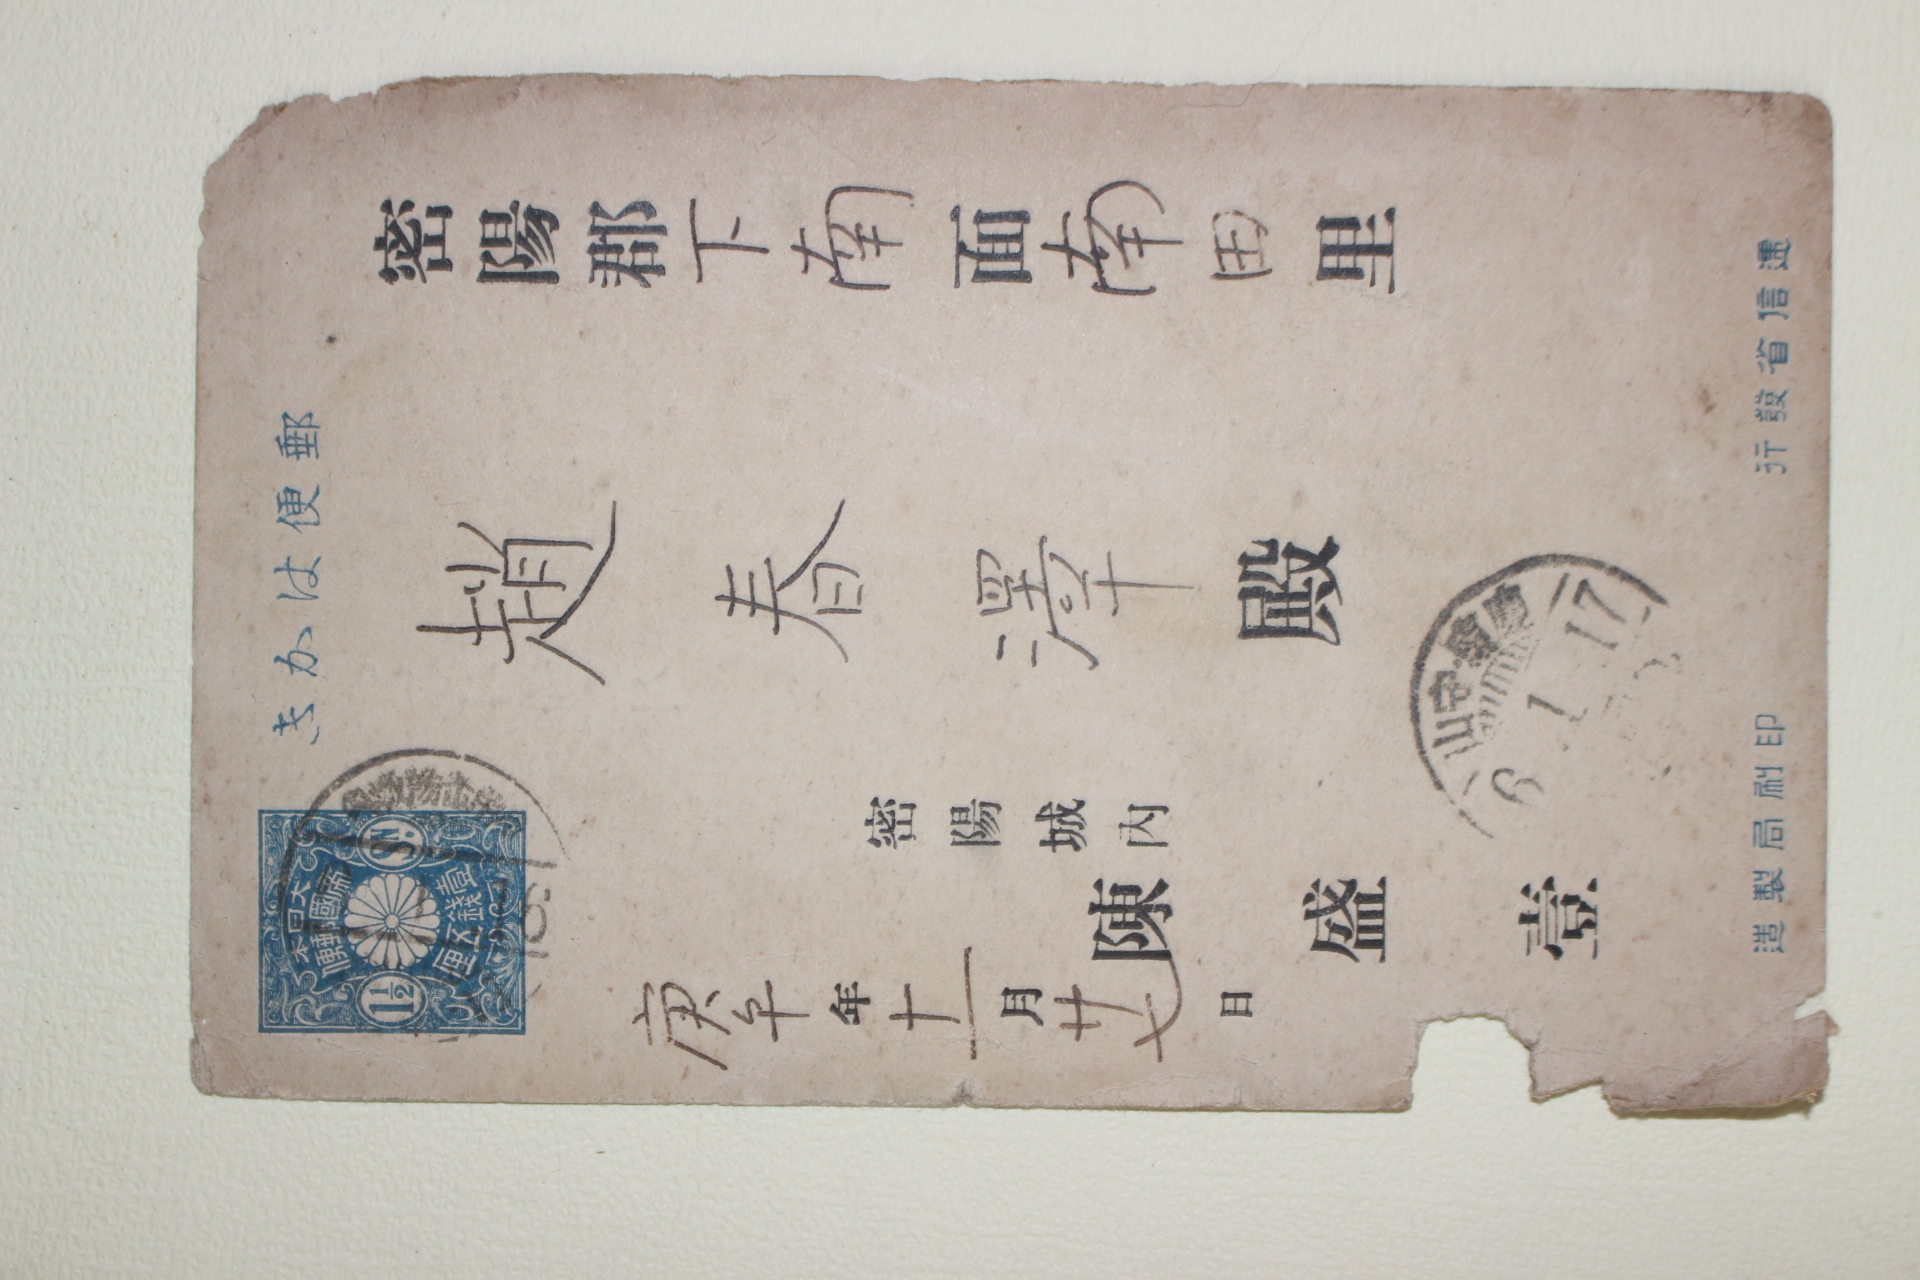 郵便はかき
大日本
帝國郵便
壹錢五厘
1½
SN
密陽郡下南面南田里
趙春澤殿
密陽城內
陳盛壹
庚午年十一月廿七日
守山
6.1.17
遞信省發行
印刷局製造